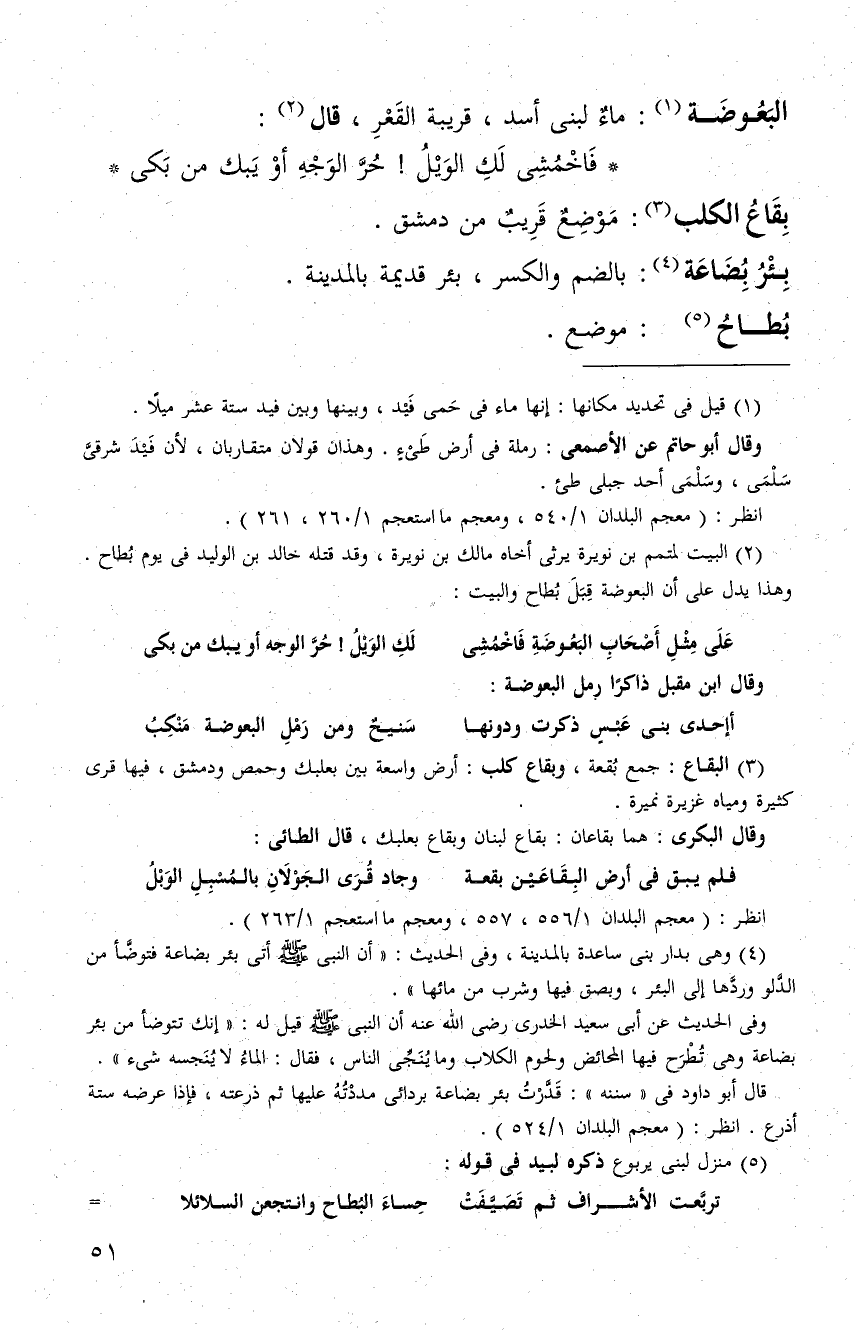 البَعُـوضَـــة (١) : ماءٌ لبنى أسد ، قريبة القَعْرِ ، قال (٢) :
* فَاخْمُشِى لَكِ الوَيْلُ ! حُرَّ الوَجْهِ أوْ يَبك من بَكى *
بِقَاعُ الكلب (٣) : مَوْضِعٌ قَرِيبٌ من دمشق .
بِـئْرُ بُِضَاعَة (٤) : بالضم والكسر ، بئر قديمة بالمدينة .
بُطــــاحُ (٥) : موضع .
(١) قيل فى تحديد مكانها : إنها ماء فى حَمى فَيْد ، وبينها وبين فيد ستة عشر ميلًا .
وقال أبو حاتم عن الأصمعى : رملة فى أرض طَيْءٍ . وهـذان قولان متقـاربان ، لأن فَيْدَ شرقىَّ
سَلْمَى ، وسَلْمَى أحد جبلى طئ .
انظر : ( معجم البلدان ٥٤٠/١ ، ومعجم ما استعجم ٢٦٠/١ ، ٢٦١ ) .
(٢) البيت لمتمم بن نويرة يرثى أخاه مالك بن نويرة ، وقد قتله خالد بن الوليد فى يوم بُطاح .
وهـذا يدل على أن البعوضة قِبَلَ بُطاح والبيت :
عَلَى مِثْلِ أَصْحَابِ البَعُـوضَةِ فَاخْمُشِى لَكِ الوَيْلُ ! حُرَّ الوجه أو يـبك من بكى
وقال ابن مقبل ذاكرًا رمل البعوضـة :
أإحـدى بنـى عَبْـسٍ ذكرت ودونهـا سَنـيـحٌ ومن رَمْلِ البعوضـة مَنْكِبُ
(٣) البقـاع : جمع بُقعة ، وبقاع كلب : أرض واسعة بين بعلبك وحمص ودمشق ، فيها قرى
كثيرة ومياه غزيرة نميرة .
وقال البكرى : هما بقاعان : بقاع لبنان وبقاع بعلبك ، قال الطـائى :
فـلم يبـق فى أرض البِـقَـاعَيْـن بقعـة وجاد قُـرَى الـجَوْلَانِ بالـمُسْبِـلِ الوَبْلُ
انظر : ( معجم البلدان ٥٥٦/١ ، ٥٥٧ ، ومعجم ما استعجم ٢٦٣/١ ) .
(٤) وهى بدار بنى ساعدة بالمدينة ، وفى الحديث : « أن النبى ﷺ أتى بئر بضاعة فتوضَّأ من
الدَّلو وردَّها إلى البئر ، وبصق فيها وشرب من مائها » .
وفى الحديث عن أبى سعيد الخدرى رضى الله عنه أن النبى ﷺ قيل له : « إنك تتوضأ من بئر
بضاعة وهى تُطْرَح فيها المحائض ولحوم الكلاب وما يُنَجِّى الناس ، فقال : الماءُ لا يُنَجسه شىء » .
قال أبو داود فى « سننه » : قَدَّرْتُ بئر بضاعة بردائى مددْتُهُ عليها ثم ذرعته ، فإذا عرضه ستة
أذرع . انظر : ( معجم البلدان ٥٢٤/١ ) .
(٥) منزل لبنى يربوع ذكره لبيد فى قـوله :
تربَّعـت الأشــــراف ثـم تَصَيَّفَتْ حِسـاءَ البُطـاح وانـتجعن السـلائلا =
٥١